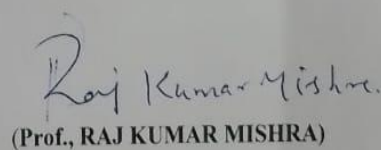 Raj Kumar Mishra.
(Prof., RAJ KUMAR MISHRA)